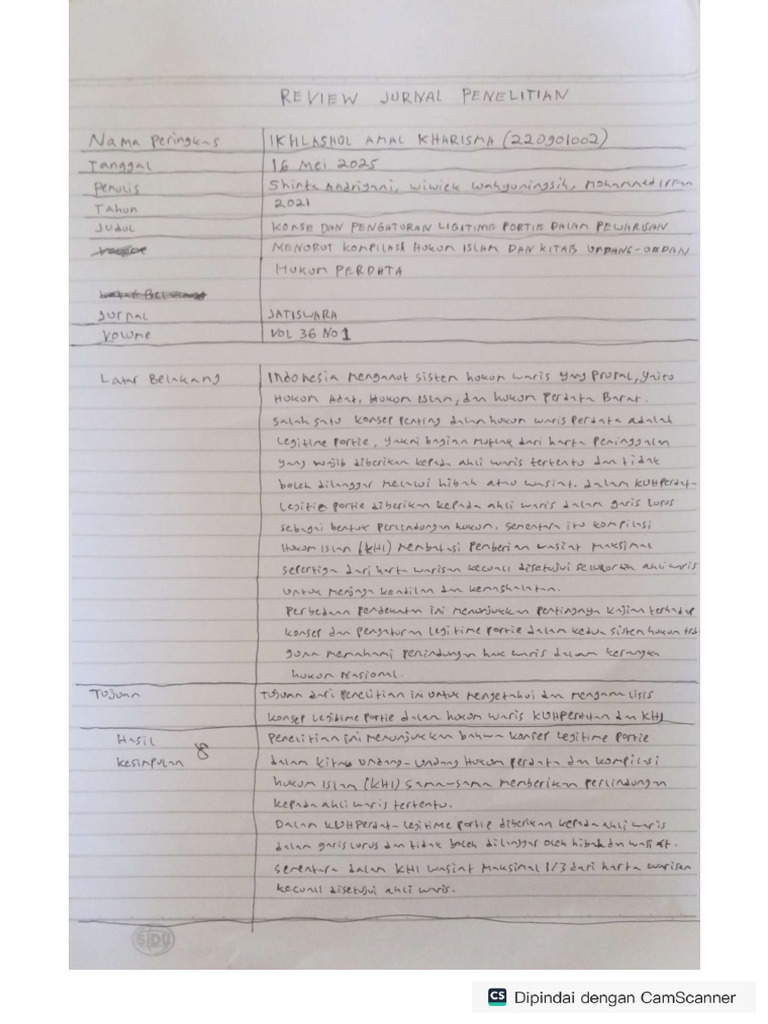 REVIEW JURNAL PENELITIAN
Nama Peringkas IKHLASHOL AMAL KHARISMA (220901002)
Tanggal 16 Mei 2025
Penulis Shinta Andriyani, Wiwiek Wahyuningsih, Mohammad Irfan
Tahun 2021
Judul KONSE DAN PENGATURAN LIGITIME PORTIE DALAM PEWARISAN
MENURUT KOMPILASI HUKUM ISLAM DAN KITAB UNDANG-UNDAN
HUKUM PERDATA
Jurnal JATISWARA
Volume VOL 36 NO 1
Latar Belakang Indonesia menganut sistem hukum waris yang prural, yaito
Hukum Adat, Hukum Islam, dan hukum Perdata Barat.
Salah satu konsep penting dalam hukum waris Perdata adalah
Legitime Portie, yakni bagian mutlak dari harta peninggalan
yang wajib diberikan kepada ahli waris tertentu dan tidak
boleh dilanggar melalui hibah atau wasiat. dalam KUHPerdat-
Legitie Portie diberikan kepada ahli waris dalam garis lurus
sebagai bentuk perlindongan hukum. Sementara itu kompilasi
Hukum Islam (KHI) membatasi pemberian wasiat maksimal
sepertiga dari harta warisan kecuali disetujui seluruh ahli waris
untuk menjaga keadilan dan kemashalatan.
Perbedaan pendekatan ini menunjukkan pentingnya kajian terhadap
konsep dan pengaturan legitime portie dalam kedua sistem hukum trs
guna memahami perlindungan hak waris dalam kerangka
hukum Nasional.
Tujuan Tujuan dari penelitian ini untuk mengetahui dan menganalisis
konsep Legitime Portie dalam hukum waris KUHPerdatan dan KHI
Hasil Penelitian ini menunjukkan bahwa konsep legitime Portie
kesimpulan & dalam kitab undang-undang Hukum perdata dan kompilasi
hukum Islam (KHI) sama-sama memberikan perlindungan
kepada ahli waris tertentu.
Dalam KUHPerdat- legitime Portie diberikan kepada ahli waris
dalam garis lurus dan tidak boleh dilanggar oleh hibah dan wasiat.
Sementara dalam KHI wasiat maksimal 1/3 dari harta warisan
kecuali disetujui ahli waris.
SIDU
CS Dipindai dengan CamScanner